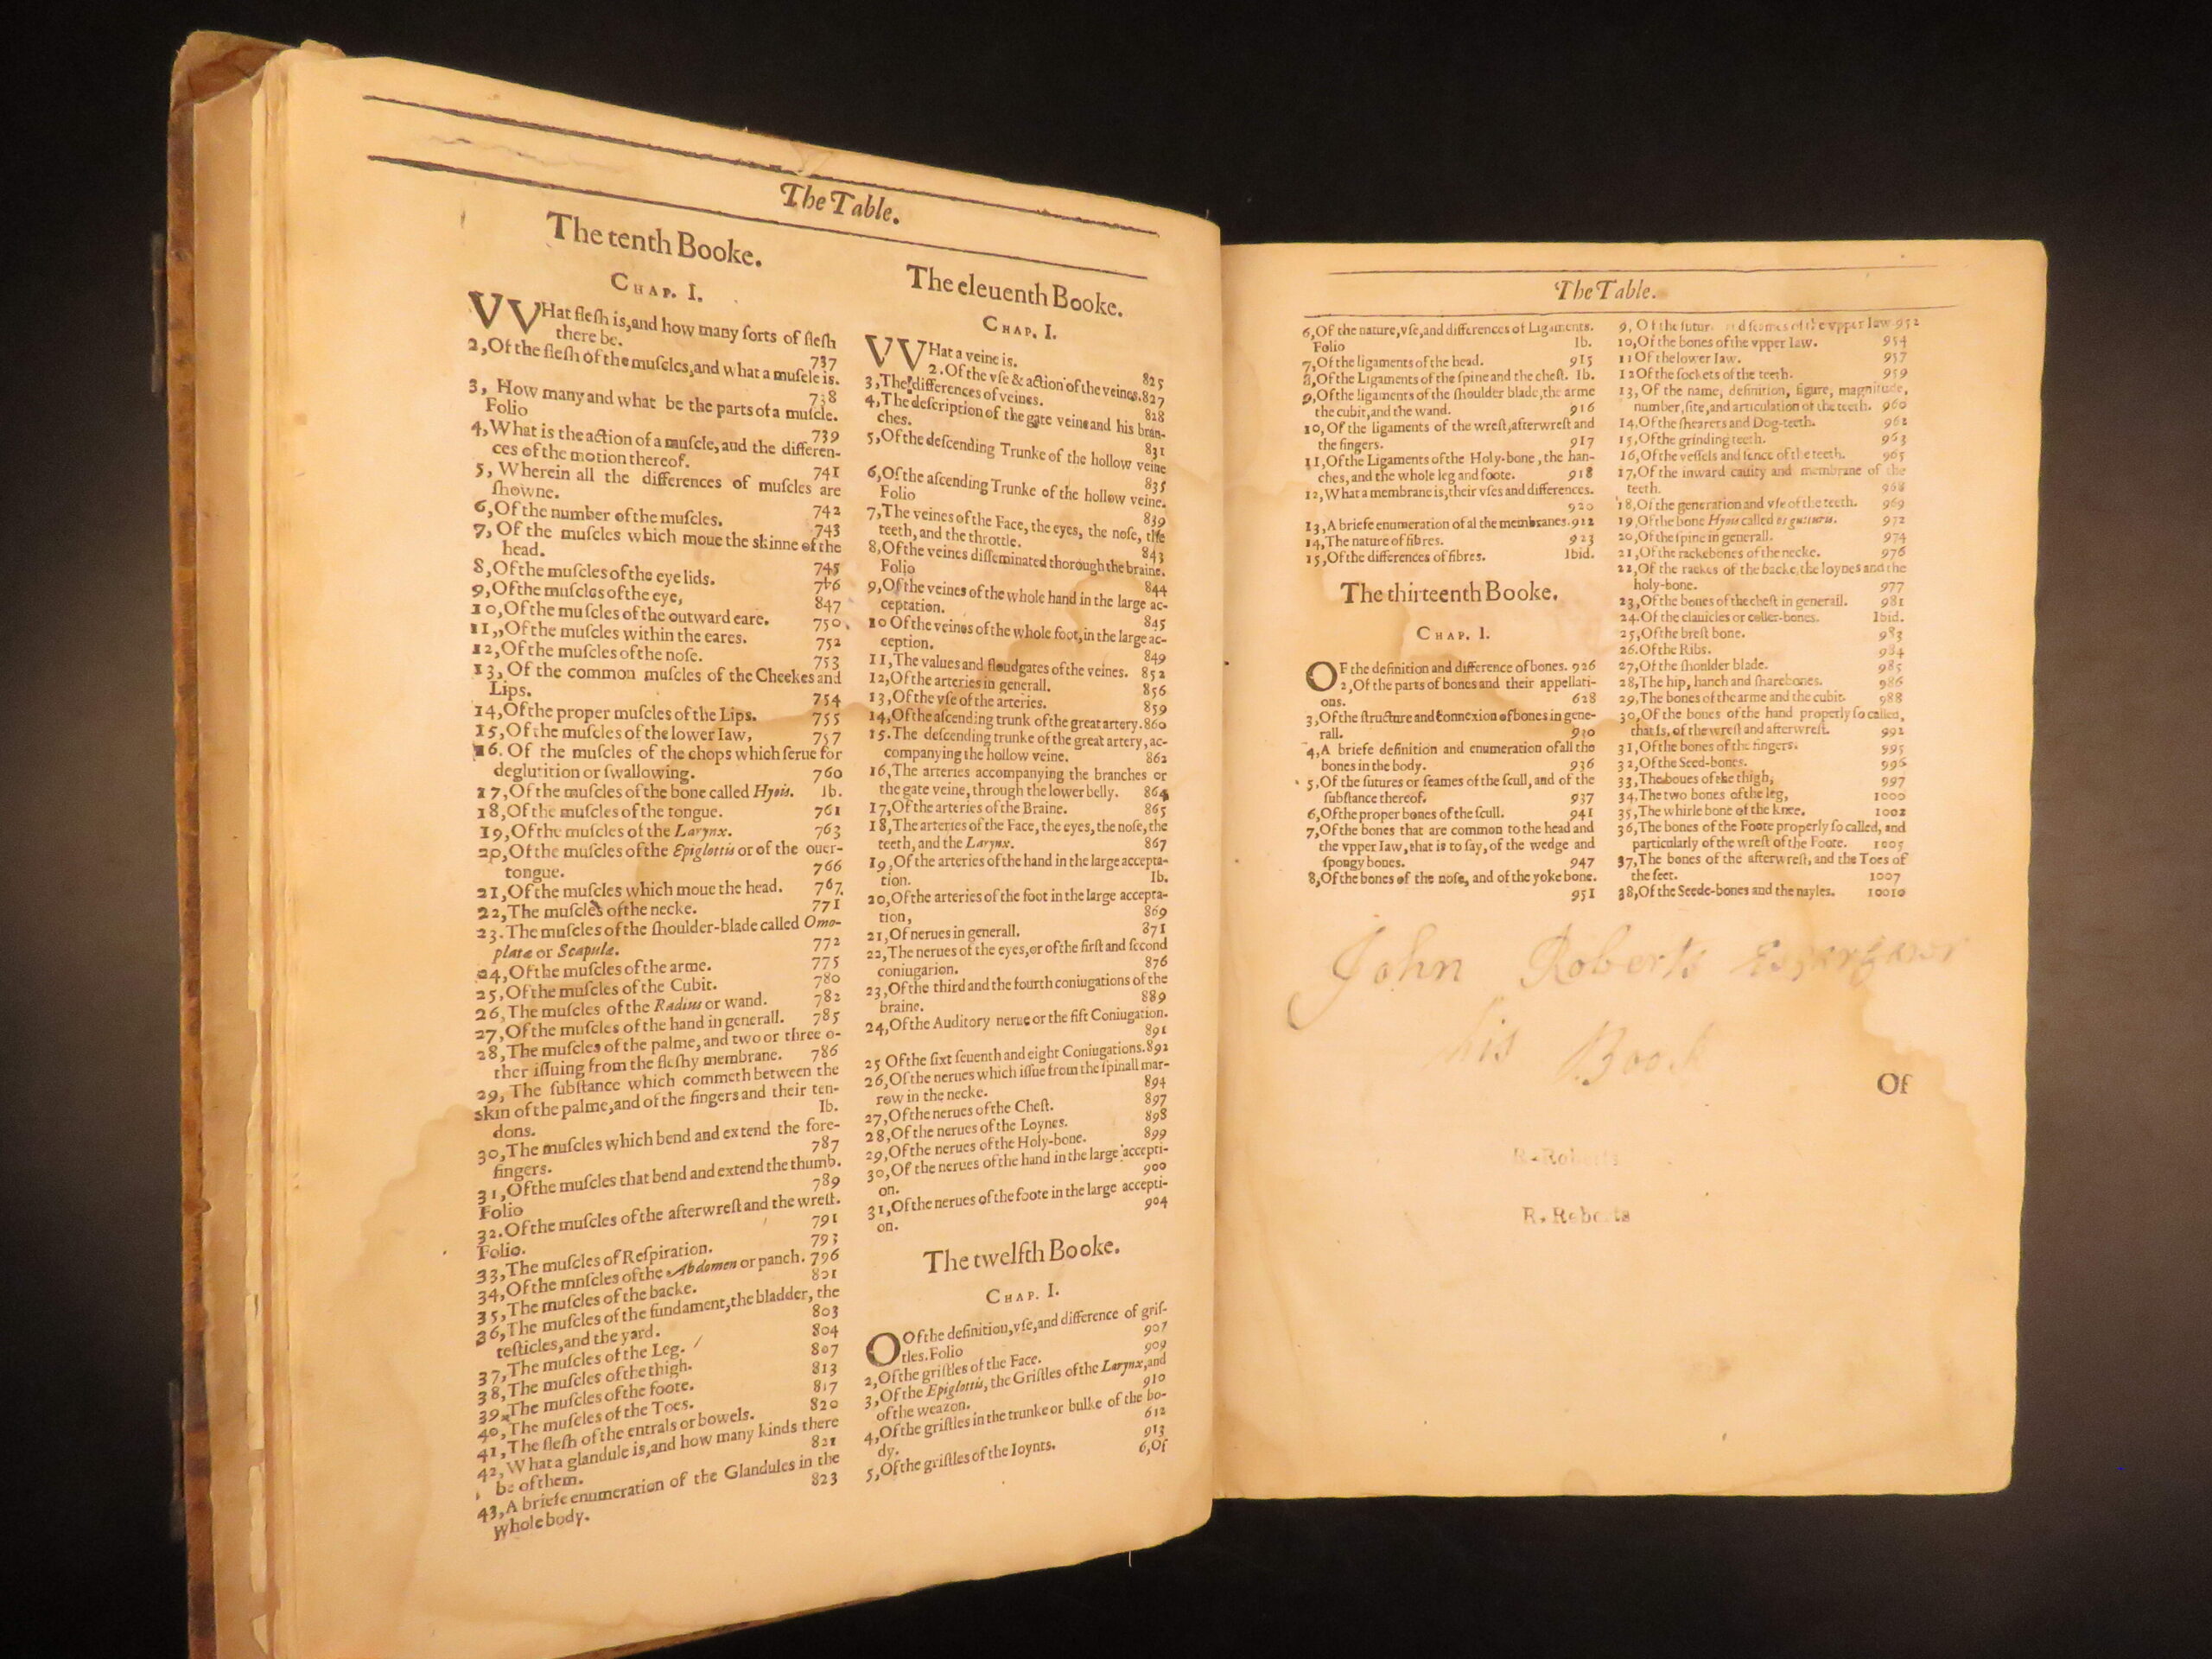 The Table.
The tenth Booke.
CHAP. I.
VVHat fleſh is,and how many ſorts of fleſh
there be. 737
2,Of the fleſh of the muſcles,and what a muſcle is.
738
3, How many and what be the parts of a muſcle.
Folio 739
4,What is the action of a muſcle, and the differen-
ces of the motion thereof. 741
5, Wherein all the differences of muſcles are
ſhowne. 742
6,Of the number of the muſcles. 743
7, Of the muſcles which moue the skinne of the
head. 745
8,Of the muſcles of the eye lids. 746
9,Of the muſcles of the eye, 847
10,Of the muſcles of the outward eare. 750
11,,Of the muſcles within the eares. 752
12,Of the muſcles of the noſe. 753
13, Of the common muſcles of the Cheekes and
Lips. 754
14,Of the proper muſcles of the Lips. 755
15,Of the muſcles of the lower Iaw, 757
16. Of the muſcles of the chops which ſerue for
deglutition or ſwallowing. 760
17,Of the muſcles of the bone called Hyois. Ib.
18,Of the muſcles of the tongue. 761
19,Of the muſcles of the Larynx. 763
20,Of the muſcles of the Epiglottis or of the ouer-
tongue. 766
21,Of the muſcles which moue the head. 767
22,The muſcles of the necke. 771
23.The muſcles of the ſhoulder-blade called Omo-
platæ or Scapula. 772
24,Of the muſcles of the arme. 775
25,Of the muſcles of the Cubit. 780
26,The muſcles of the Radius or wand. 782
27,Of the muſcles of the hand in generall. 785
28,The muſcles of the palme, and two or three o-
ther iſſuing from the fleſhy membrane. 786
29, The ſubſtance which commeth between the
skin of the palme,and of the fingers and their ten-
dons. Ib.
30,The muſcles which bend and extend the fore-
fingers. 787
31,Of the muſcles that bend and extend the thumb.
Folio 789
32.Of the muſcles of the afterwreſt and the wreſt.
Folio. 791
33,The muſcles of Reſpiration. 793
34,Of the mnſcles of the Abdomen or panch. 796
35,The muſcles of the backe. 801
36,The muſcles of the fundament,the bladder, the
teſticles,and the yard. 803
37,The muſcles of the Leg. 804
38,The muſcles of the thigh. 807
39,The muſcles of the foote. 813
40,The muſcles of the Toes. 817
41,The fleſh of the entrals or bowels. 820
42,What a glandule is,and how many kinds there
be of them. 821
43,A briefe enumeration of the Glandules in the
whole body. 823
The eleuenth Booke.
CHAP. I.
VVHat a veine is. 825
2.Of the vſe & action of the veines.827
3,The differences of veines. 828
4,The deſcription of the gate veine and his bran-
ches. 831
5,Of the deſcending Trunke of the hollow veine
835
6,Of the aſcending Trunke of the hollow veine.
Folio 839
7,The veines of the Face, the eyes, the noſe, the
teeth, and the throttle. 843
8,Of the veines diſſeminated thorough the braine.
Folio 844
9,Of the veines of the whole hand in the large ac-
ceptation. 845
10 Of the veines of the whole foot,in the large ac-
ception. 849
11,The values and floudgates of the veines. 852
12,Of the arteries in generall. 856
13,Of the vſe of the arteries. 859
14,Of the aſcending trunk of the great artery.860
15.The deſcending trunke of the great artery, ac-
companying the hollow veine. 862
16,The arteries accompanying the branches or
the gate veine, through the lower belly. 864
17,Of the arteries of the Braine. 865
18,The arteries of the Face, the eyes, the noſe, the
teeth, and the Larynx. 867
19,Of the arteries of the hand in the large accepta-
tion. Ib.
20,Of the arteries of the foot in the large accepta-
tion, 869
21,Of nerues in generall. 871
22,The nerues of the eyes,or of the firſt and ſecond
coniugation. 876
23,Of the third and the fourth coniugations of the
braine. 889
24,Of the Auditory nerue or the fift Coniugation.
891
25 Of the ſixt ſeuenth and eight Coniugations.892
26,Of the nerues which iſſue from the ſpinall mar-
row in the necke. 894
27,Of the nerues of the Cheſt. 897
28,Of the nerues of the Loynes. 898
29,Of the nerues of the Holy-bone. 899
30,Of the nerues of the hand in the large accepti-
on. 900
31,Of the nerues of the foote in the large accepti-
on. 904
The twelfth Booke.
CHAP. I.
OOf the definitiou,vſe,and difference of griſ-
tles.Folio 907
2,Of the griſtles of the Face. 909
3,Of the Epiglottis, the Griſtles of the Larynx,and
of the weazon. 910
4,Of the griſtles in the trunke or bulke of the bo-
dy. 612
5,Of the griſtles of the Ioynts. 913
6,Of
The Table.
6,Of the nature,vſe,and differences of Ligaments.
Folio Ib.
7,Of the ligaments of the head. 915
8,Of the Ligaments of the ſpine and the cheſt. Ib.
9,Of the ligaments of the ſhoulder blade,the arme
the cubit,and the wand. 916
10,Of the ligaments of the wreſt,afterwreſt and
the fingers. 917
11,Of the Ligaments of the Holy-bone, the han-
ches, and the whole leg and foote. 918
12,What a membrane is,their vſes and differences.
920
13,A briefe enumeration of al the membranes.922
14,The nature of fibres. 923
15,Of the differences of fibres. Ibid.
The thirteenth Booke.
CHAP. I.
OF the definition and difference of bones. 926
2,Of the parts of bones and their appellati-
ons. 628
3,Of the ſtructure and connexion of bones in gene-
rall. 930
4,A briefe definition and enumeration of all the
bones in the body. 936
5,Of the ſutures or ſeames of the ſcull, and of the
ſubſtance thereof. 937
6,Of the proper bones of the ſcull. 941
7,Of the bones that are common to the head and
the vpper Iaw, that is to ſay, of the wedge and
ſpongy bones. 947
8,Of the bones of the noſe, and of the yoke bone.
951
9, Of the ſeames of the vpper Iaw 952
10,Of the bones of the vpper Iaw. 954
11 Of the lower Iaw. 957
12 Of the ſockets of the teeth. 959
13, Of the name, definition, figure, magnitude,
number,ſite,and articulation of the teeth. 960
14.Of the ſhearers and Dog-teeth. 962
15,Of the grinding teeth. 963
16,Of the veſſels and ſence of the teeth. 965
17,Of the inward cauity and membrane of the
teeth. 968
18,Of the generation and vſe of the teeth. 969
19,Of the bone Hyois called os gutturis. 972
20,Of the ſpine in generall. 974
21,Of the rackebones of the necke. 976
22,Of the rackes of the backe,the loynes and the
holy-bone. 977
23,Of the bones of the cheſt in generall. 981
24.Of the clauicles or coller-bones. Ibid.
25,Of the breſt bone. 983
26.Of the Ribs. 984
27,Of the ſhoulder blade. 985
28,The hip, hanch and ſharebones. 986
29,The bones of the arme and the cubit. 988
30,Of the bones of the hand properly ſo called,
that is, of the wreſt and afterwreſt. 992
31,Of the bones of the fingers. 995
32,Of the Seed-bones. 996
33,The boues of the thigh, 997
34.The two bones of the leg, 1000
35,The whirle bone of the knee. 1002
36,The bones of the Foote properly ſo called, and
particularly of the wreſt of the Foote. 1005
37,The bones of the afterwreſt, and the Toes of
the feet. 1007
38,Of the Seede-bones and the nayles. 10010
John Roberts
his Book
Of
R. Roberts
R. Roberts